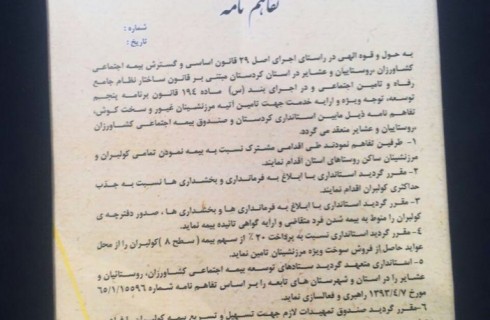 تفاهم نامه
شماره :
تاریخ :
به حول و قوه الهی در راستای اجرای اصل ۲۹ قانون اساسی و گسترش بیمه اجتماعی
کشاورزان ،روستاییان و عشایر در استان کردستان مبتنی بر قانون ساختار نظام جامع
رفاه و تامین اجتماعی و در اجرای بند (س) ماده ۱۹۴ قانون برنامه پنجم
توسعه، توجه ویژه و ارایه خدمت جهت تامین آتیه مرزنشینان غیور و سخت کوش،
تفاهم نامه ذیل مابین استانداری کردستان و صندوق بیمه اجتماعی کشاورزان
،روستاییان و عشایر منعقد می گردد.
۱- طرفین تفاهم نمودند طی اقدامی مشترک نسبت به بیمه نمودن تمامی کولبران و
مرزنشینان ساکن روستاهای استان اقدام نمایند.
۲- مقرر گردید استانداری با ابلاغ به فرمانداری و بخشداری ها نسبت به جذب
حداکثری کولبران اقدام نمایند.
۳- مقرر گردید استانداری با ابلاغ به فرمانداری ها و بخشداری ها ، صدور دفترچه ی
کولبران را منوط به بیمه شدن فرد متقاضی و ارایه گواهی تائیده بیمه نماید.
۴- مقرر گردید استانداری نسبت به پرداخت ۲۰٪ از سهم بیمه (سطح ۸ )کولبران را از محل
عواید حاصل از فروش سوخت ویژه مرزنشینان تامین نماید.
۵- استانداری متعهد گردید ستادهای توسعه بیمه اجتماعی کشاورزان، روستائیان و
عشایر را در استان و شهرستان های تابعه را بر اساس تفاهم نامه شماره ۶۵/۱/۱۵۵۹۶
مورخ ۱۳۹۳/۴/۷ راهبری و فعالسازی نماید.
۶-مقرر گردید صندوق تمهیدات لازم جهت تسهیل و تسریع بیمه کولبران را